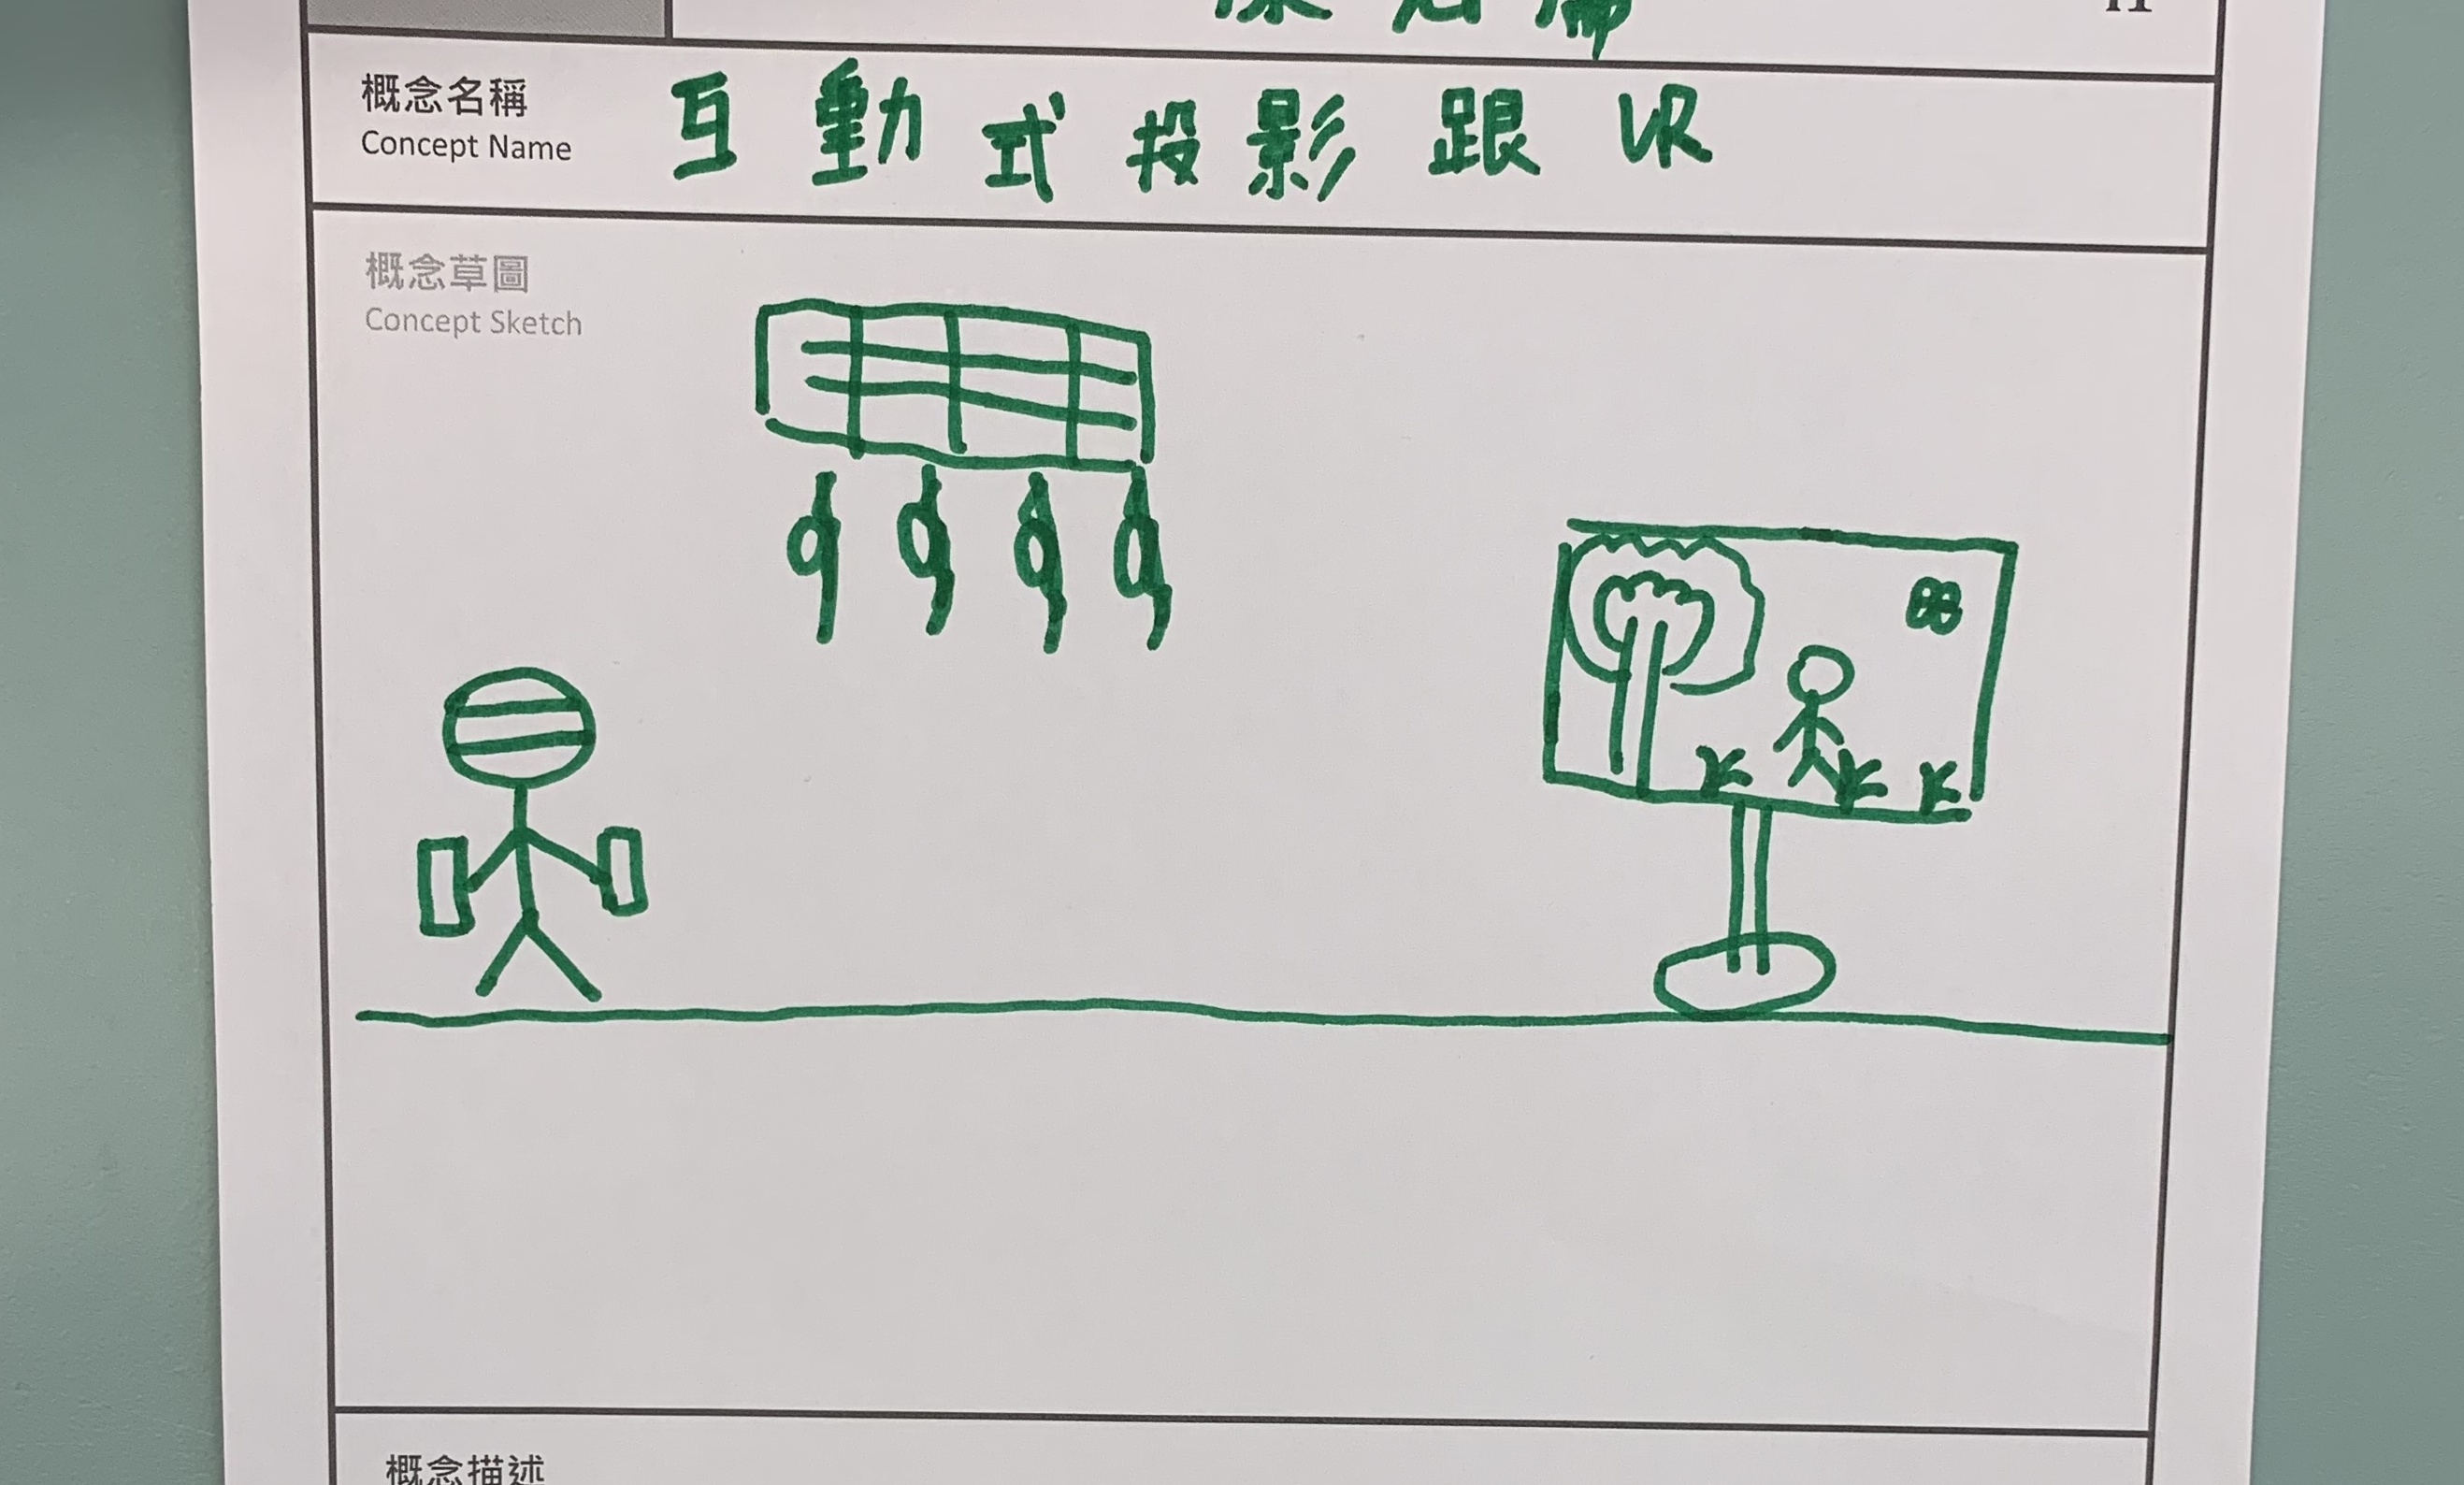 概念名稱
Concept Name
互動式投影跟VR
概念草圖
Concept Sketch
概念描述